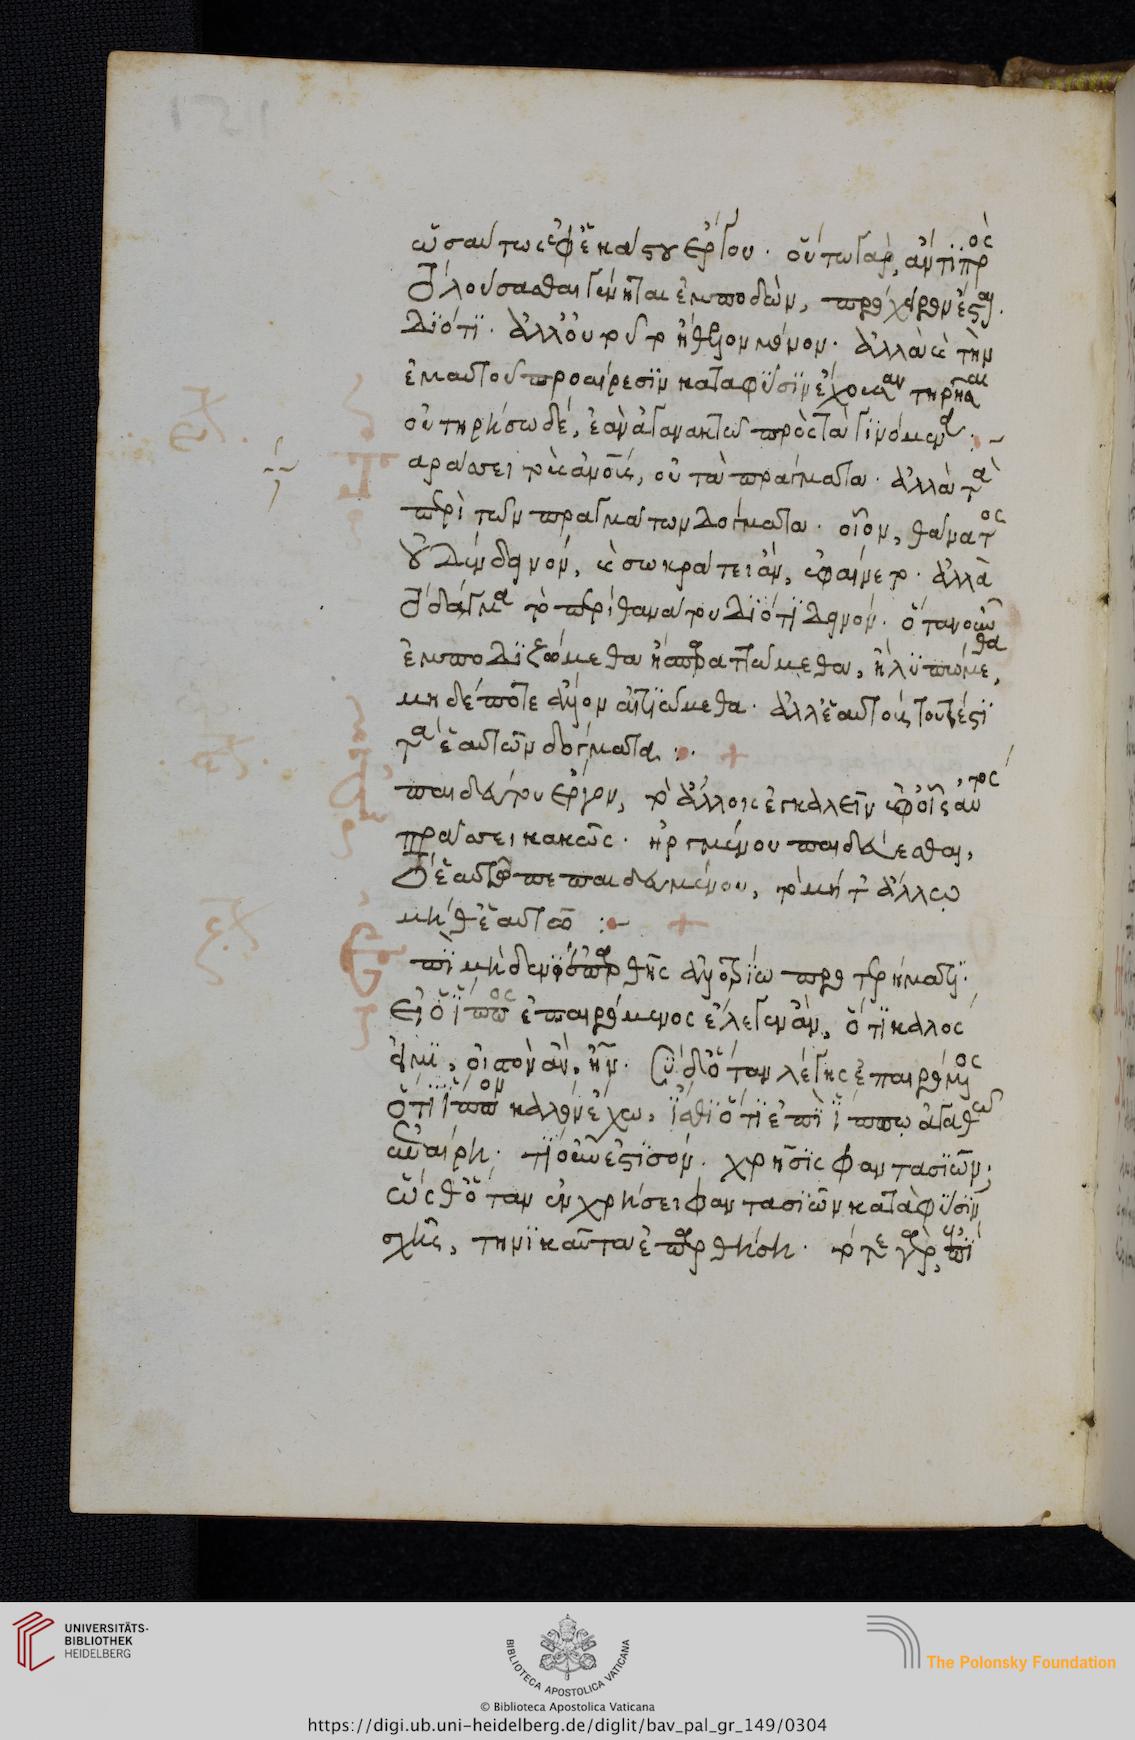 ὡσαύτως ἐφ' ἑκάστου ἔργου. οὕτω γὰρ, ἄν τι πρὸς
τὸ λούσασθαι γένηται ἐμποδὼν, πρόχειρον ἔσται.
διότι. ἀλλ' οὐ τοῦτο ἤθελον μόνον. ἀλλὰ καὶ τὴν
ἐμαυτοῦ προαίρεσιν κατὰ φύσιν ἔχουσαν τηρῆσαι
οὐ τηρήσω δέ, ἐὰν ἀγανακτῶ πρὸς τὰ γινόμενα
ταράσσει τοὺς ἀνους, οὐ τὰ πράγματα. ἀλλὰ τὰ
περὶ τῶν πραγμάτων δόγματα. οἷον, θάνατος
οὐδὲν δεινόν, καὶ σωκράτει ἂν, ἐφαίνετο. ἀλλὰ
τὸ δόγμα τὸ περὶ θανάτου διότι δεινόν. ὅταν οὖν
ἐμποδιζώμεθα ἢ ταραττώμεθα, ἢ λυπώμεθα,
μηδέποτε ἄλλον αἰτιώμεθα. ἀλλ' ἑαυτοὺς τουτέστι
τὰ ἑαυτῶν δόγματα
ἀπαιδεύτου ἔργον, τὸ ἄλλοις ἐγκαλεῖν ἐφ' οἷς αὐτὸς
πράσσει κακῶς. ἠργμένου παιδεύεσθαι,
τὸ ἑαυτῷ πεπαιδευμένου, τὸ μήτ' ἄλλῳ
μήθ' ἑαυτῷ
ἐπὶ μηδενὶ ἐπαρθῇς ἀλλοτρίῳ προτερήματι.
εἰ ὁ ἵππος ἐπαιρόμενος ἔλεγεν ἂν, ὅτι καλός
εἰμι, οἰστὸν ἂν, ἦν. σὺ δ' ὅταν λέγῃς ἐπαιρόμενος
ὅτι ἵππον καλὸν ἔχω, ἴσθι ὅτι ἐπὶ ἵππῳ ἀγαθῷ
ἐπαίρῃ. τί οὖν ἐστι σόν. χρῆσις φαντασιῶν;
ὥσθ' ὅταν ἐν χρήσει φαντασιῶν κατὰ φύσιν
σχῇς, τηνικαῦτα ἐπάρθητι. τότε γὰρ, ἐπὶ
UNIVERSITÄTS-
BIBLIOTHEK
HEIDELBERG
BIBLIOTECA APOSTOLICA VATICANA
The Polonsky Foundation
© Biblioteca Apostolica Vaticana
https://digi.ub.uni-heidelberg.de/diglit/bav_pal_gr_149/0304